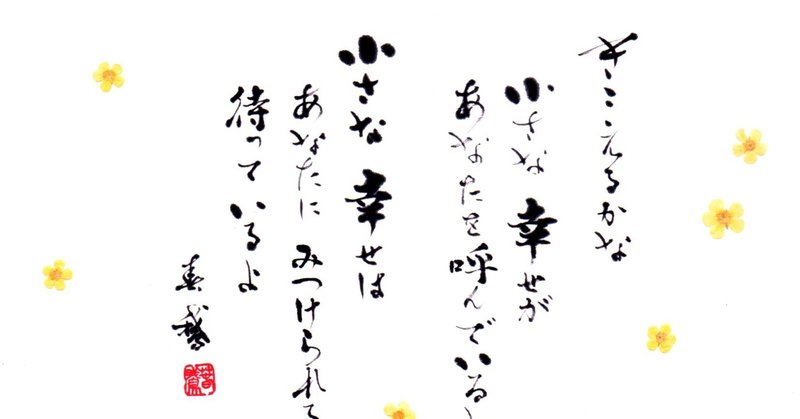 きこえるかな
小さな幸せが
あなたを呼んでいる
小さな幸せは
あなたにみつけられて
待っているよ